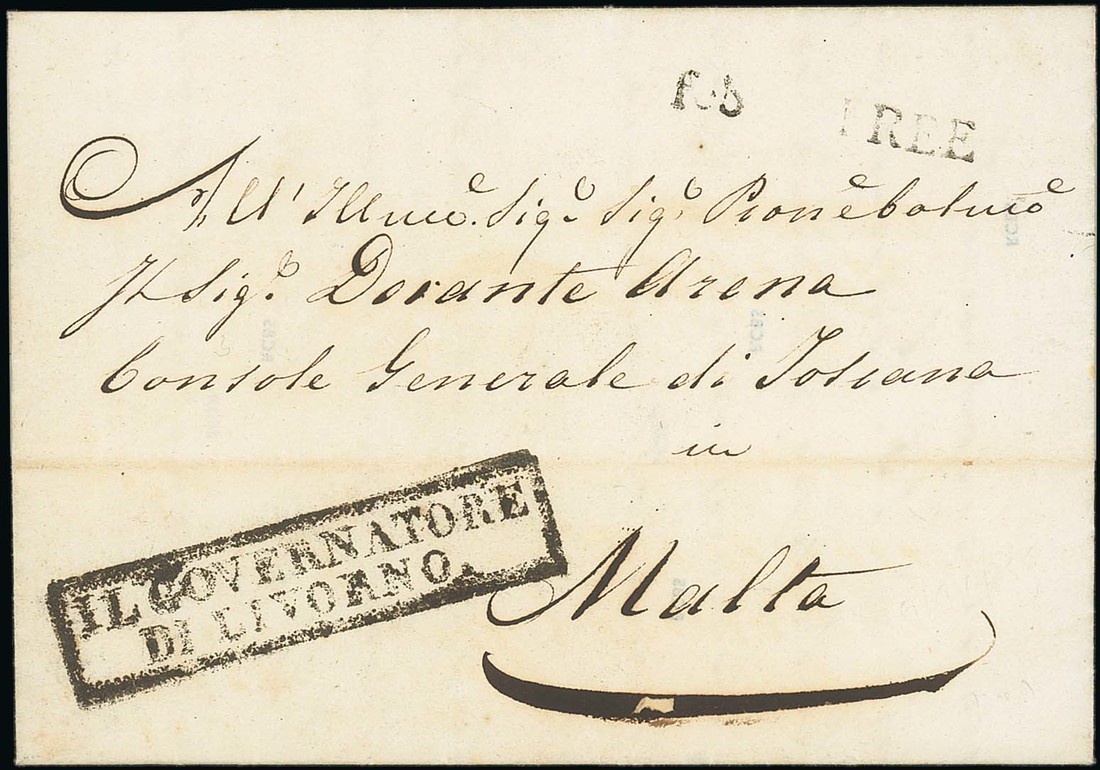 FREE
All' Illmo. Sige. Sige. Prone Colmo
Il Sige. Dorante Arena
Console Generale di Toscana
in
Malta
IL GOVERNATORE
DI LIVORNO.